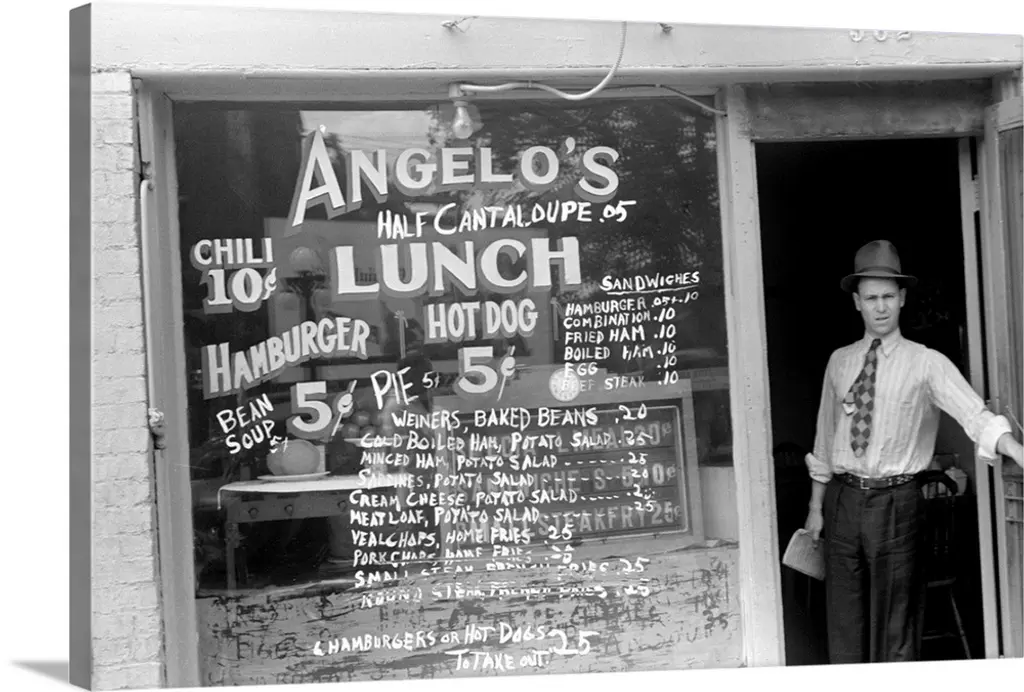 502
ANGELO'S
HALF CANTALOUPE .05
LUNCH
CHILI
10¢
HOT DOG
5¢
HAMBURGER
5¢
PIE 5¢
BEAN
SOUP 5¢
SANDWICHES
HAMBURGER .05+.10
COMBINATION .10
FRIED HAM .10
BOILED HAM .10
EGG .10
BEEF STEAK .10
WEINERS, BAKED BEANS .20
COLD BOILED HAM, POTATO SALAD .25
MINCED HAM, POTATO SALAD ------- .25
SARDINES, POTATO SALAD .20
CREAM CHEESE, POTATO SALAD ..... .20
MEAT LOAF, POTATO SALAD ...... .25
VEAL CHOPS, HOME FRIES .25
PORK CHOPS HOME FRIES .25
SMALL STEAK FRENCH FRIES .25
ROUND STEAK, FRENCH FRIES .25
STEAK FRY 25¢
HAMBURGERS OR HOT DOGS .25
TO TAKE OUT.